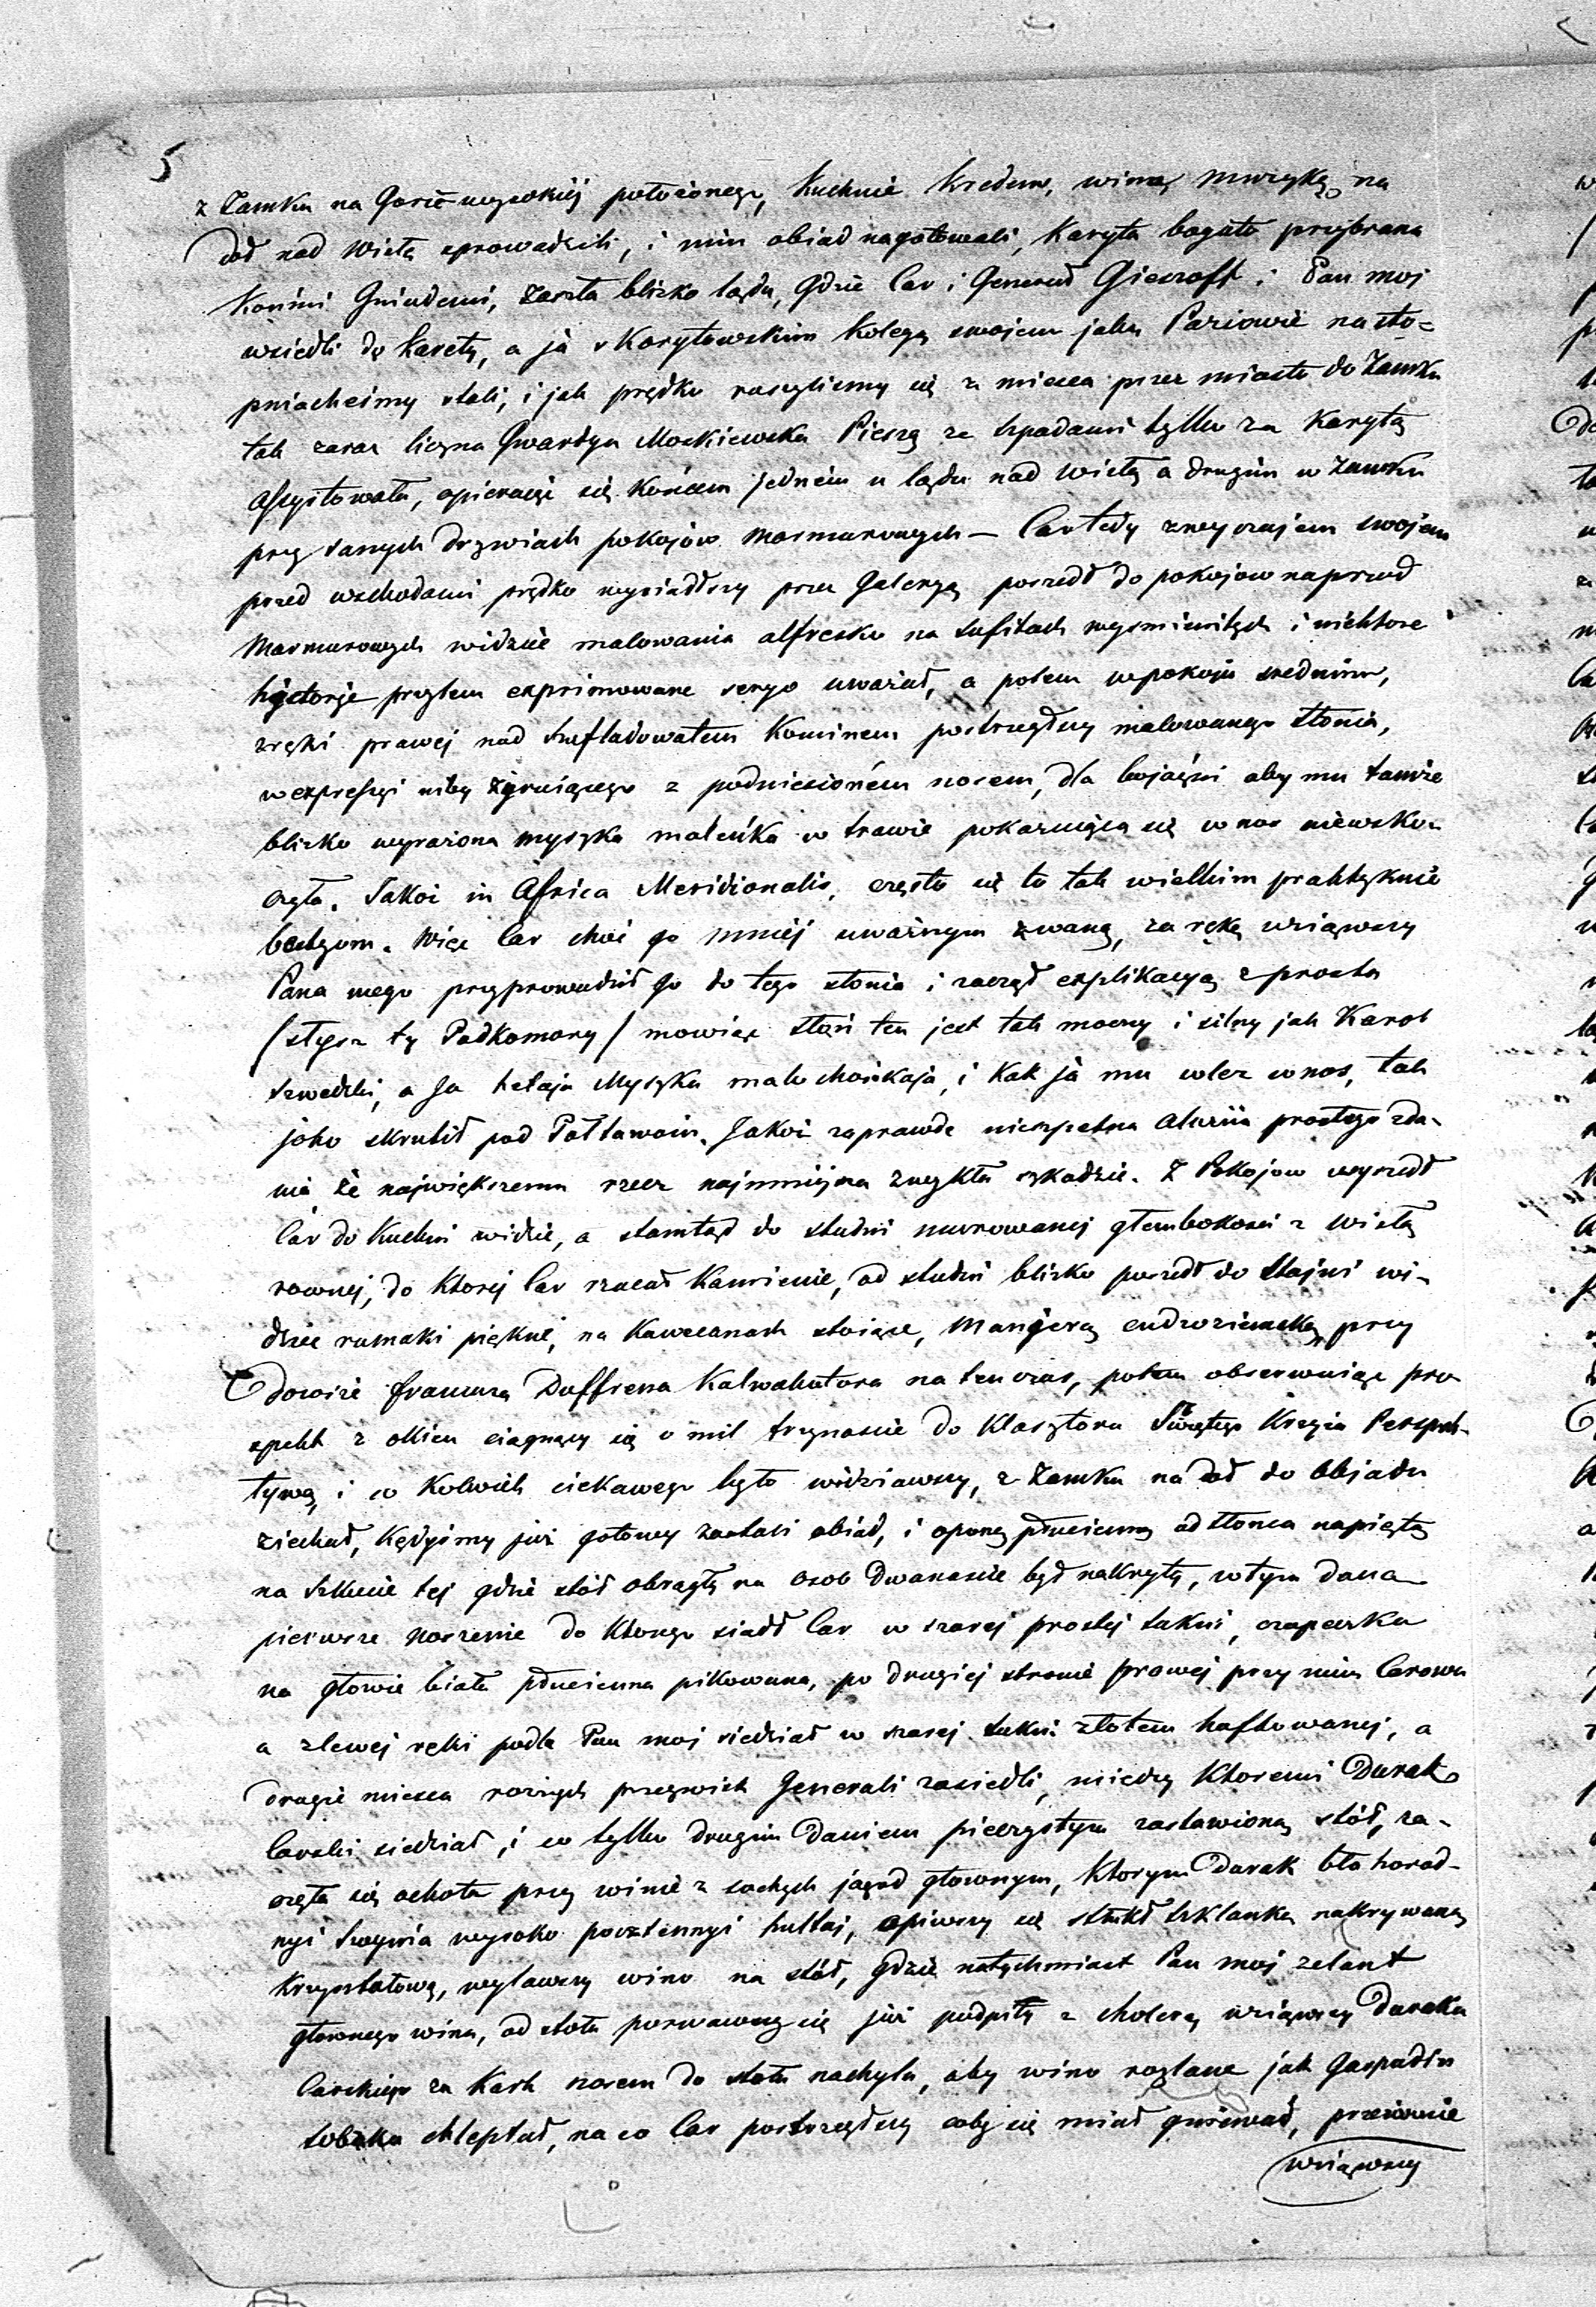 5
z Zamku na Gorze wysokiej położonego, Kuchnie Kredens, wina, muzykę na
doł nad Wisłę sprowadzili, i nim obiad nagotowali, Karyta bogato przybrana
Końmi Gniademi, zaszła blizko lądu, gdzie Car i Generał Gieszoff i Pan moj
wsiedli do Karety, a ja z Korytowskim Kolegą swojem jako Paziowie na sto=
pniacheśmy stali, i jak prędko ruszyliśmy się z miesca przez miasto do Zamku
tak zaraz liczna Gwardya Moskiewska Pieszą ze szpadami tylko za Karytą
assystowała, opierając się Końcem jednem u lądu nad Wisłą a drugim w Zamku
przy samych drzwiach pokojów Marmurowych — Car tedy zwyczajem swojem
przed wschodami prędko wysiadłszy przez Galeryą poszedł do pokojow naprzod
Marmurowych widzieć malowania alfresko na sufitach wysmienitych i niektore
hystorje przytem exprimowane seryo uważał, a potem w pokoju srednim,
z ręki prawej nad Szufladowatem Kominem postrzegłszy malowanego słonia,
w expressyi niby żyruiącego z podniesioném nosem, dla bojaźni aby mu tamże
blizko wyrażona myszka maleńka w trawie pokazuiąca się w nos niewsko-
czyła. Jakoż in Africa Meridionalis, często się to tak wielkim praktykuie
bestyom. Więc Car choć go mniéj uważnym zwaną, za rękę wziąwszy
Pana mego przyprowadził go do tego słonia i zaczął explikacyą z prosta
/ słysz ty Podkomory / mowiąc słoń ten jest tak mocny i silny jak Karol
szwedzki, a Ja hetaja Myszka malochońkaja, i Kak ja mu wlez w nos, tak
joho skrutił pod Połtawoiu. Jakoż zaprawde nieszpetna aluzija prostego zda-
nia że największemu rzecz najmnijsza zwykła szkodzić. Z Pokojow wyszedł
Car do Kuchni widzieć, a stamtąd do studni murowanej głembokosci z Wisłą
rownej, do Ktorej Car rzucał Kamienie, od studni blizko poszedł do Stajni wi-
dzieć rumaki piękne, na Kawecanach stoiące, Manjerą cudzoziemską przy
dozorze francuza Duffresa Kalwakatora na ten czas, potem obserwuiąc pro
spekt z okien ciągnący się o mil trzynascie do Klasztoru Swiętego Krzyża Perspek-
tywą, i co Kolwiek ciekawego było widziawszy, z Zamku na doł do Objadu
ziechał, Kędyśmy już gotowy zastali obiad, i oponę płucienną od słonca napiętą
na szkucie tej gdzie stół okrągły na osob Dwanascie był nakryty, w tym dana
pierwsze noszenie do Ktorego siadł Car w szarej prostej sukni, czapeczka
na głowie biała płucienna pikowana, po drugiej stronie prawej przy nim Carowa
a z lewej ręki podle Pan moj siedział w szarej sukni złotem haftowanej, a
drugie miesca roznych przezwisk Generali zasiedli, miedzy Ktoremi Durak
Carski siedział, i co tylko drugim Daniem pieczystym zastawioną stół, za-
częła się ochota przy winie z suchych jagod głownym, Ktorym Durak bło horod-
nyi Swynia wysoko pocztennyi hultaj, opiwszy się stłukł szklankę nakrywaną
Kryształową, wylawszy wino na stół, gdzie natychmiast Pan moj zelant
głownego wina, od stołu porwawszy się już podpiły z cholerą wziąwszy Duraka
Carskiego za Kark nosem do stołu nachyla, aby wino rozlane jak Gaspadin
sobaka chleptał, na co Car postrzegłszy coby się miał gniewać, przeciwnie
wziąwszy